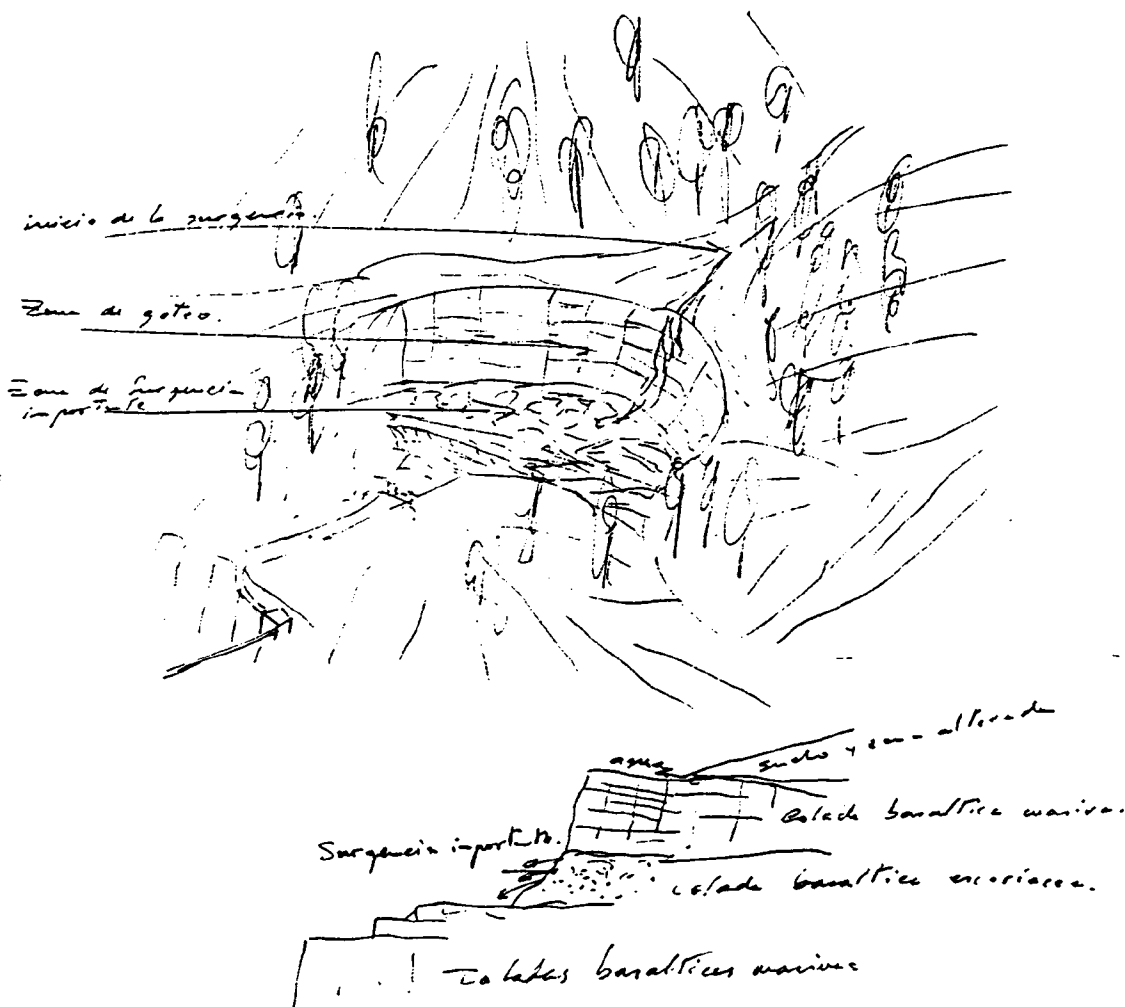 inicio de la surgencia.
Zona de goteo.
Zona de surgencia
importante
agua
suelo y zona alterada
Colada basaltica masiva.
Surgencia importante.
Colada basaltica escoriacea.
Coladas basalticas masivas